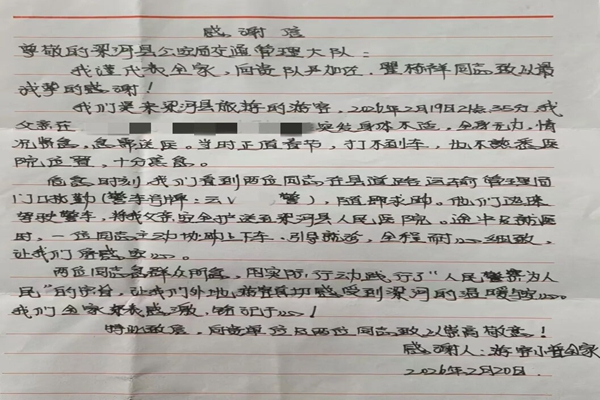 感谢信
尊敬的梁河县公安局交通管理大队：
我谨代表全家，向贵队尹加连、瞿杨祥同志致以最
诚挚的感谢！
我们是来梁河县旅游的游客，2026年2月19日21点35分，我
父亲在 突发身体不适，全身无力，情
况紧急，急需送医。当时正值春节，打不到车，也不熟悉医
院位置，十分着急。
危急时刻，我们看到两位同志在县道路运输管理局
门口执勤（警车号牌：云 警），随即求助。他们迅速
驾驶警车，将我父亲安全护送到梁河县人民医院。途中及就医
时，一位同志主动协助上下车、引导就诊，全程耐心细致，
让我们倍感安心。
两位同志急群众所急，用实际行动践行了“人民警察为人
民”的宗旨，让我们外地游客真切感受到梁河的温暖与安心。
我们全家衷心感激，铭记于心！
特此致信，向贵单位及两位同志致以崇高敬意！
感谢人：游客小普全家
2026年2月20日.